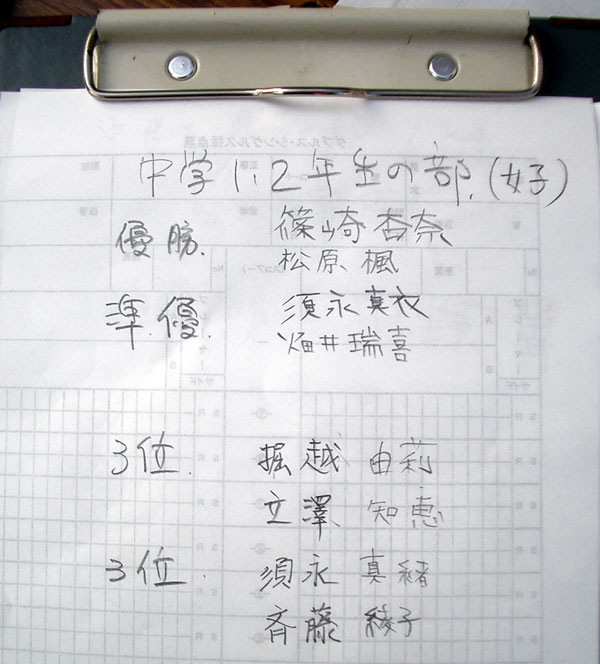 中学1.2年生の部.(女子)
優勝. 篠崎杏奈
松原 楓
準.優. 須永真衣
畑井瑞喜
3位. 掘越 由莉
立澤 知恵
3位. 須永 真緒
斉藤 綾子